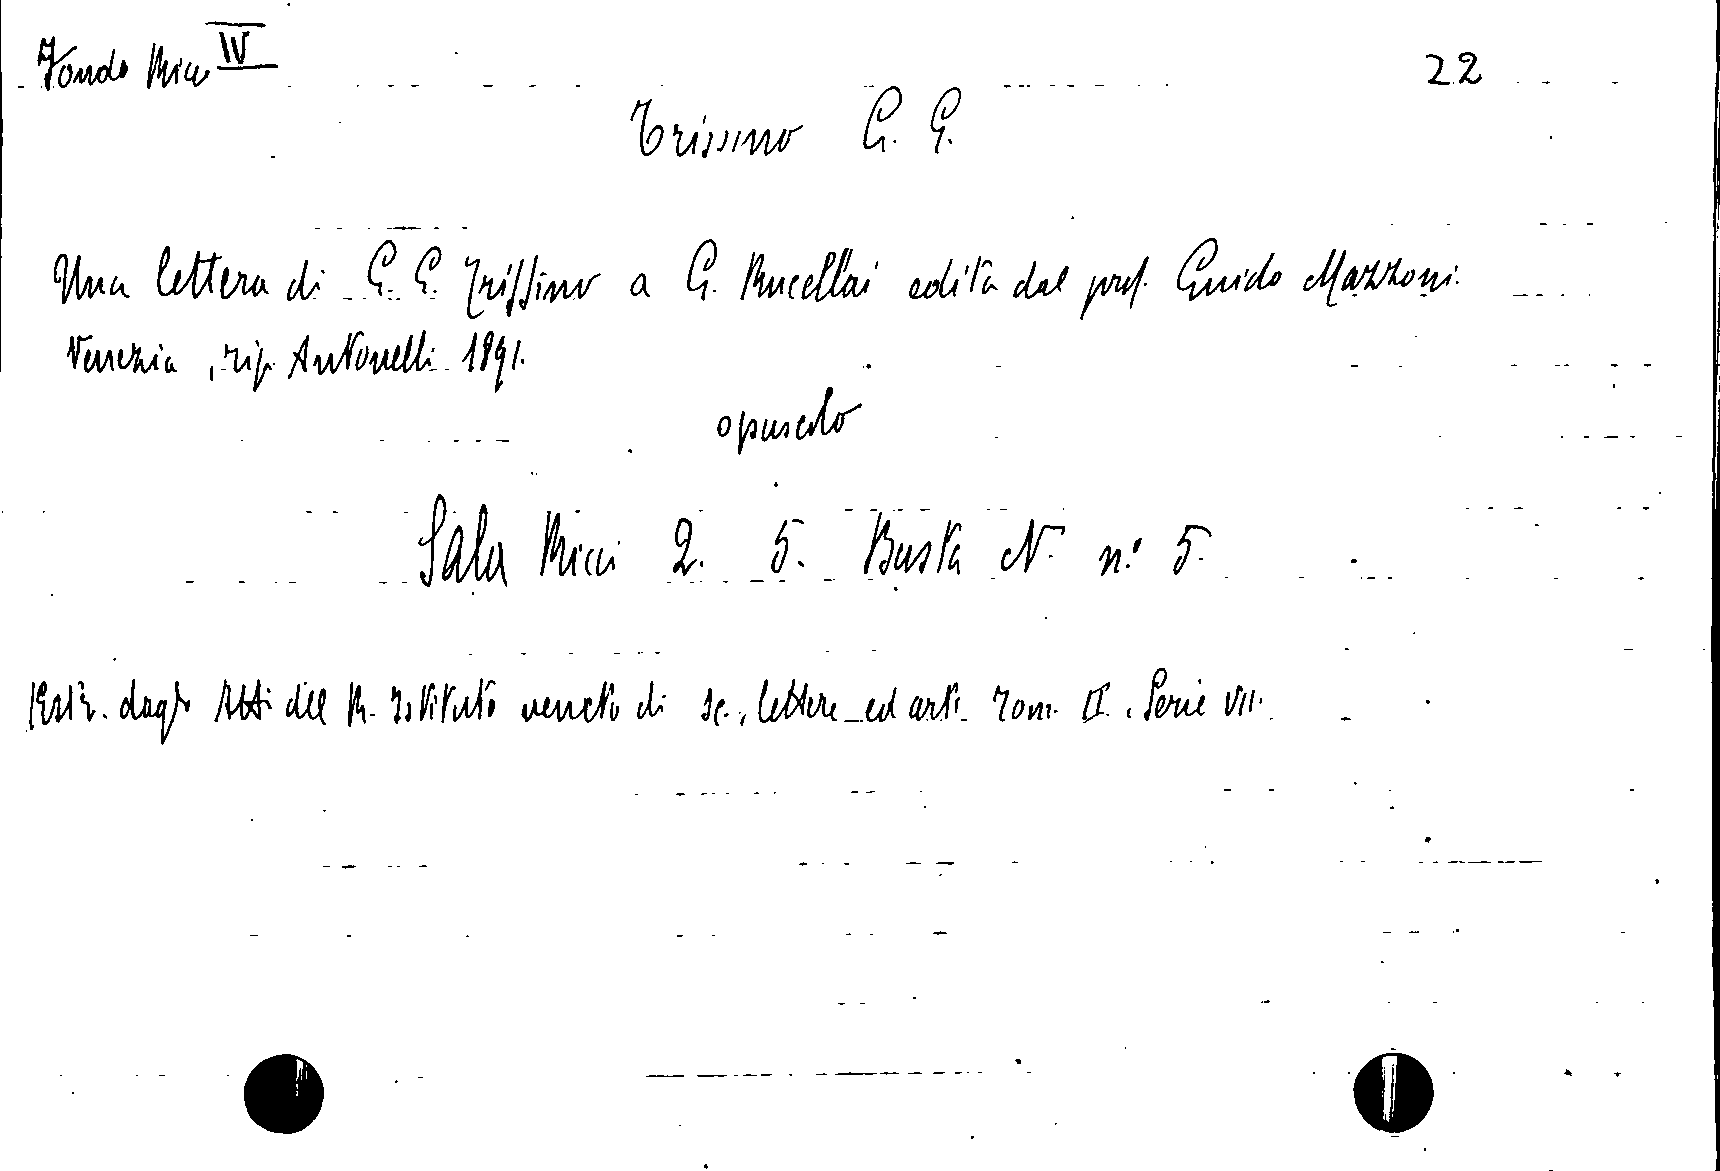 Fondo Ricci IV 22
Trissino G. G.
Una lettera di G. G. Trissino a G. Rucellai edita dal prof. Guido Mazzoni.
Venezia, tip. Antonelli 1891.
opuscolo
Sala Ricci 2. 5. Busta N. n.° 5.
Estr. dagli Atti del R. Istituto veneto di sc., lettere ed arti Tom. II. Serie VII.